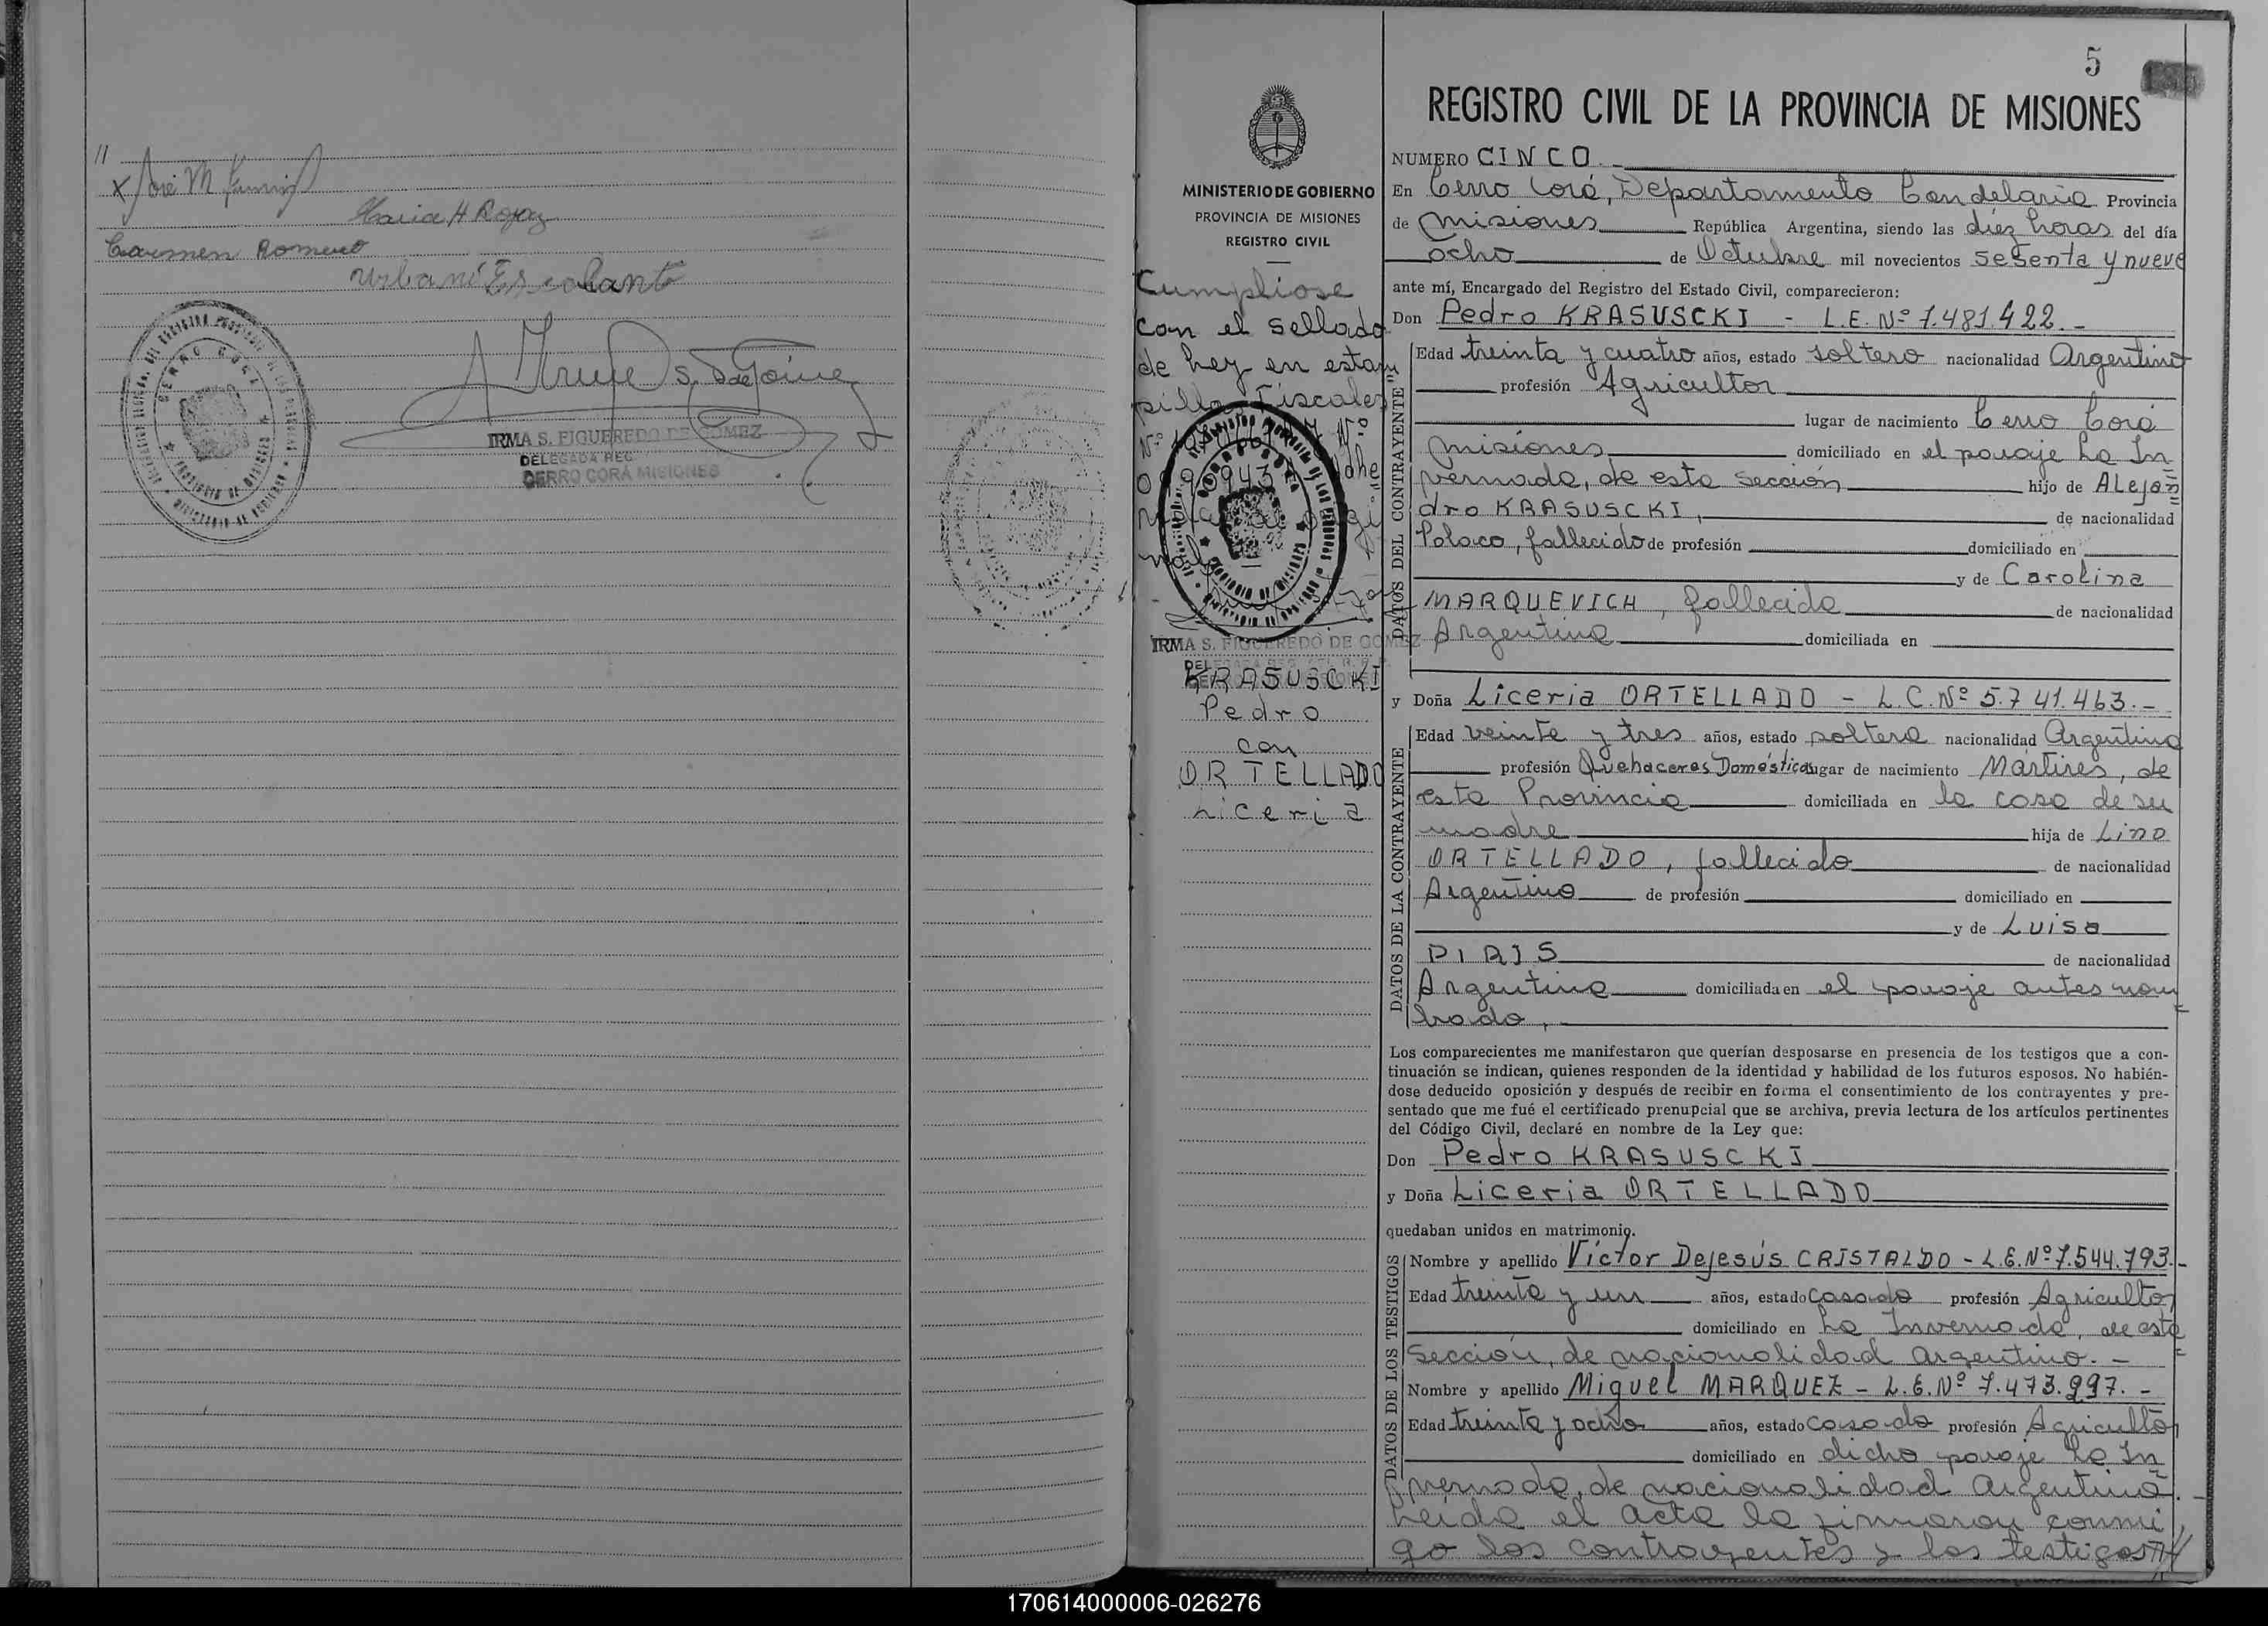 //
x José M
Maria H Rojas
Carmen Romero
Urbano Escalante
IRMA S. FIGUEREDO DE GOMEZ
DELEGADA REG.
CERRO CORÁ MISIONES
5
MINISTERIO DE GOBIERNO
PROVINCIA DE MISIONES
REGISTRO CIVIL
Cumplióse
con el sellado
de ley en estam
pillas Fiscales
IRMA S. FIGUEREDO DE GOMEZ
KRASUSCKI
Pedro
con
ORTELLADO
Liceria
REGISTRO CIVIL DE LA PROVINCIA DE MISIONES
NUMERO CINCO.-
En Cerro Corá, Departamento Candelaria Provincia
de Misiones República Argentina, siendo las diez horas del día
ocho de Octubre mil novecientos sesenta y nueve
ante mí, Encargado del Registro del Estado Civil, comparecieron:
Don Pedro KRASUSCKI - L.E. Nº 7.481.422.-
DATOS DEL CONTRAYENTE
Edad treinta y cuatro años, estado soltero nacionalidad Argentino
profesión Agricultor
lugar de nacimiento Cerro Corá
Misiones domiciliado en el paraje La In
vernada, de esta sección hijo de Alejan
dro KRASUSCKI, de nacionalidad
Polaco, fallecido de profesión domiciliado en
y de Carolina
MARQUEVICH, fallecida de nacionalidad
Argentina domiciliada en
y Doña Liceria ORTELLADO - L.C. Nº 5.741.463.-
DATOS DE LA CONTRAYENTE
Edad veinte y tres años, estado soltera nacionalidad Argentina
profesión Quehaceres Domésticos lugar de nacimiento Mártires, de
esta Provincia domiciliada en la casa de su
madre hija de Lino
ORTELLADO, fallecido de nacionalidad
Argentino de profesión domiciliado en
y de Luisa
PIRIS de nacionalidad
Argentina domiciliada en el paraje antes nom
brado,
Los comparecientes me manifestaron que querían desposarse en presencia de los testigos que a con-
tinuación se indican, quienes responden de la identidad y habilidad de los futuros esposos. No habién-
dose deducido oposición y después de recibir en forma el consentimiento de los contrayentes y pre-
sentado que me fué el certificado prenupcial que se archiva, previa lectura de los artículos pertinentes
del Código Civil, declaré en nombre de la Ley que:
Don Pedro KRASUSCKI
y Doña Liceria ORTELLADO
quedaban unidos en matrimonio.
DATOS DE LOS TESTIGOS
Nombre y apellido Víctor Dejesús CRISTALDO - L.E. Nº 7.544.793.-
Edad treinta y un años, estado casado profesión Agricultor
domiciliado en La Invernada, de esta
Sección, de nacionalidad argentino.-
Nombre y apellido Miguel MARQUEZ - L.E. Nº 7.473.997.-
Edad treinta y ocho años, estado casado profesión Agricultor
domiciliado en dicho paraje La In
vernada, de nacionalidad argentina.-
Leída el acta la firmaron conmi
go los contrayentes y los testigos //
170614000006-026276